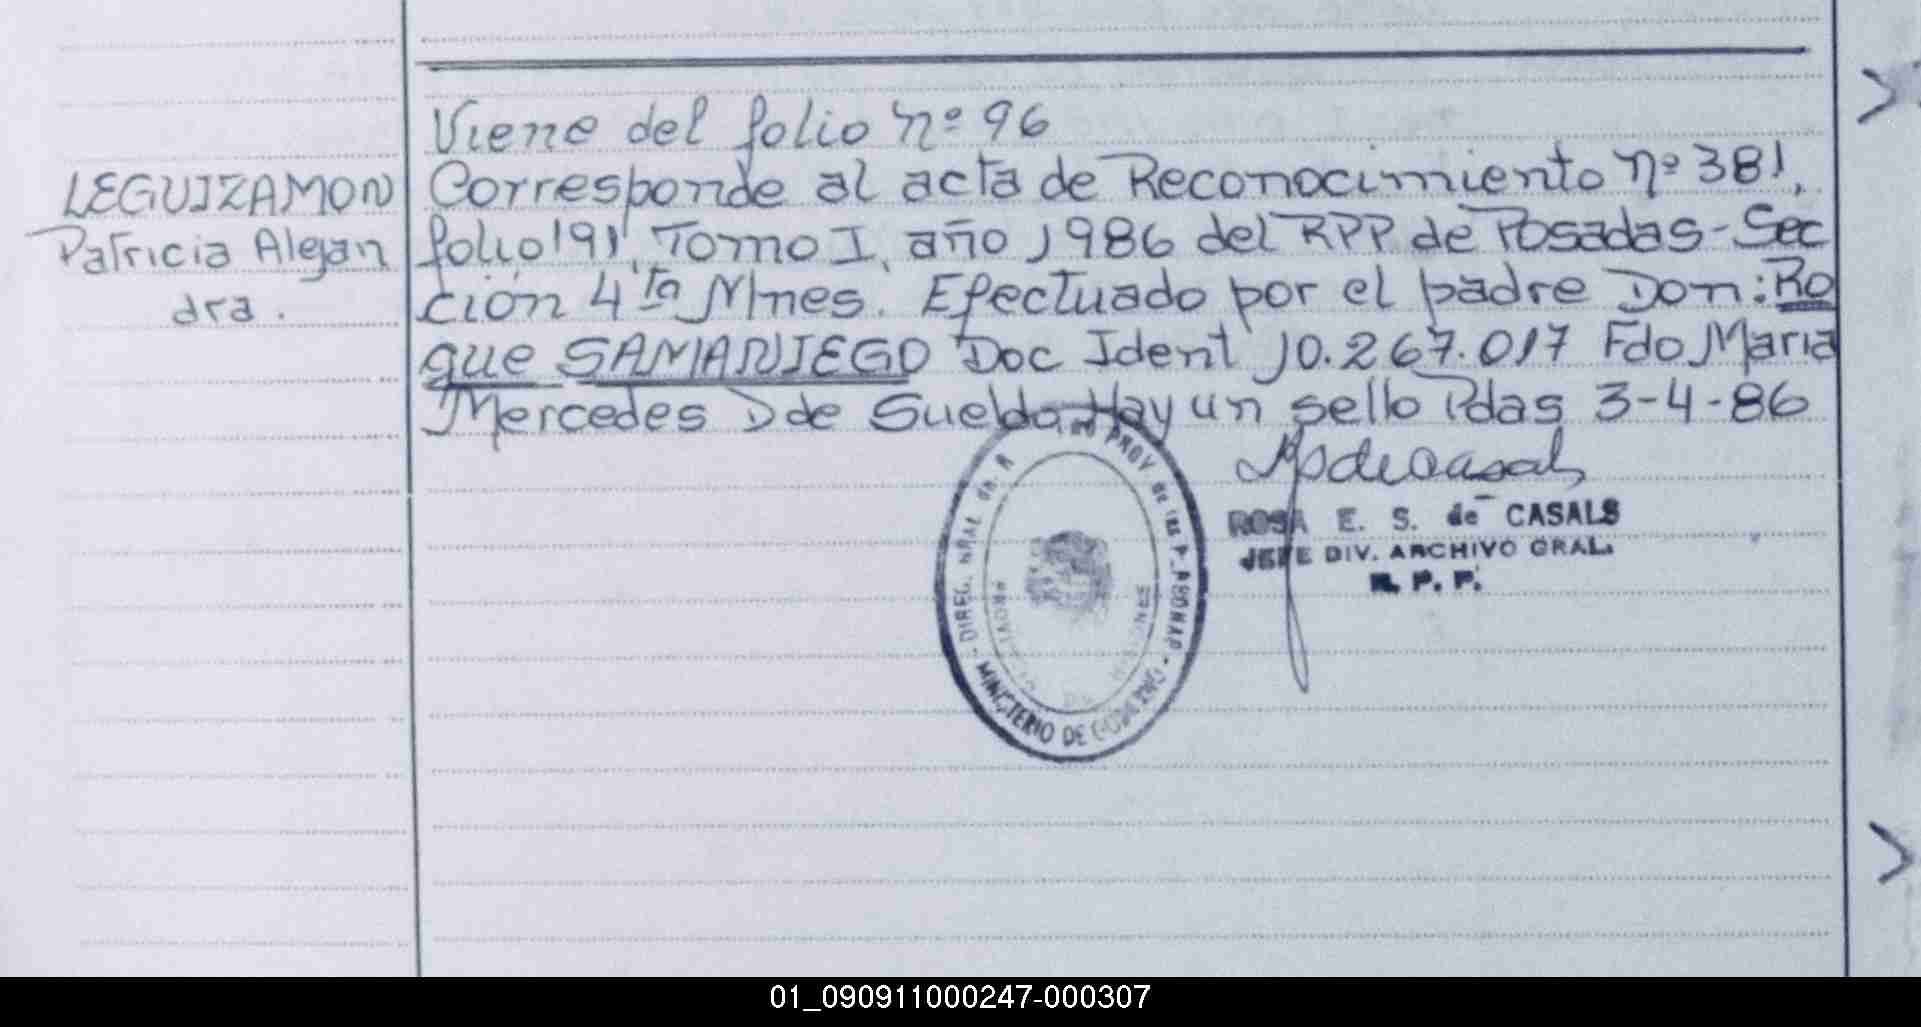 Viene del folio nº 96
LEGUIZAMON
Patricia Alejan
dra.
Corresponde al acta de Reconocimiento nº 381,
folio 191, Tomo I, año 1986 del RPP de Posadas-Sec
ción 4ta Mnes. Efectuado por el padre Don: Ro
que SAMANIEGO Doc Ident 10.267.017 Fdo Maria
Mercedes D de Sueldo Hay un sello Pdas 3-4-86
ROSA E. S. de CASALS
JEFE DIV. ARCHIVO GRAL.
R. P. P.
DIREC. GRAL. de PROV de las P
MINISTERIO DE GOBIERNO
PROVINCIA DE MISIONES
01_090911000247-000307